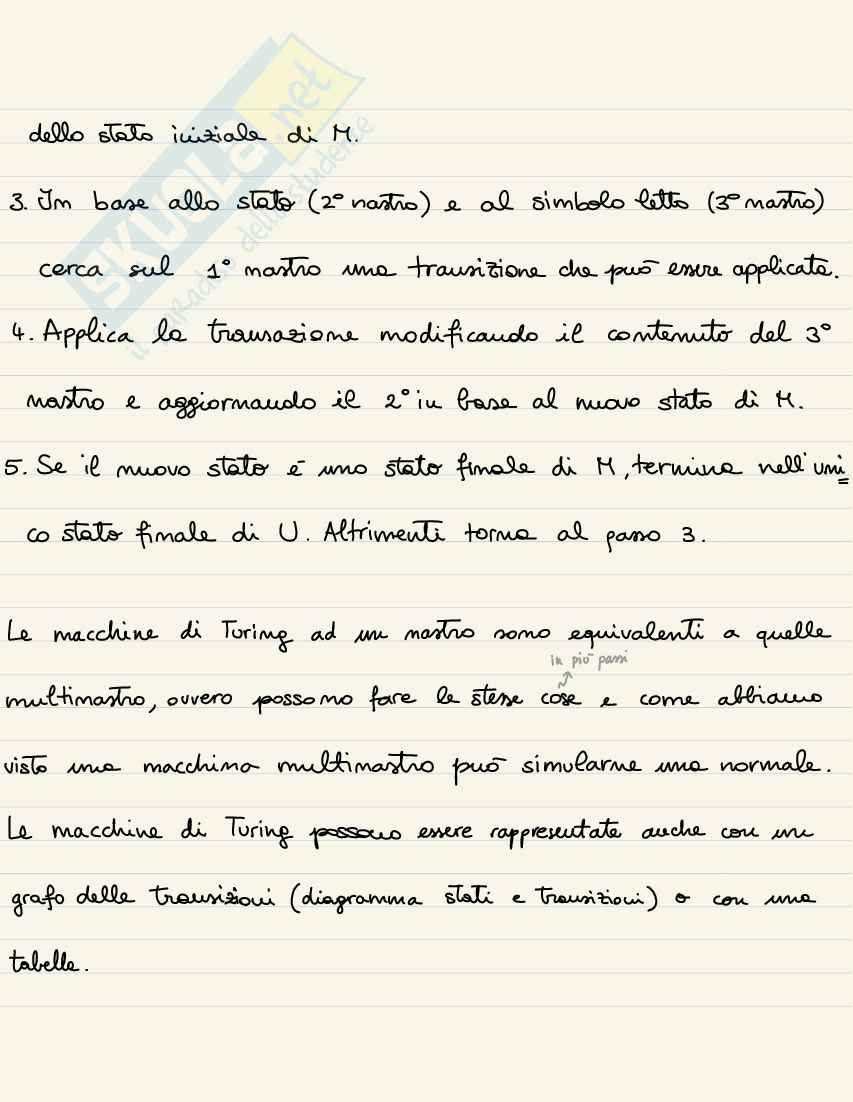 dello stato iniziale di M.
3. In base allo stato (2° nastro) e al simbolo letto (3° nastro)
cerca sul 1° nastro una transizione che può essere applicata.
4. Applica la transazione modificando il contenuto del 3°
nastro e aggiornando il 2° in base al nuovo stato di M.
5. Se il nuovo stato è uno stato finale di M, termina nell'uni
co stato finale di U. Altrimenti torna al passo 3.
Le macchine di Turing ad un nastro sono equivalenti a quelle
in più passi
multinastro, ovvero possono fare le stesse cose e come abbiamo
visto una macchina multinastro può simularne una normale.
Le macchine di Turing possono essere rappresentate anche con un
grafo delle transizioni (diagramma stati e transizioni) o con una
tabella.
SKUOLA.net
il paradiso dello studente